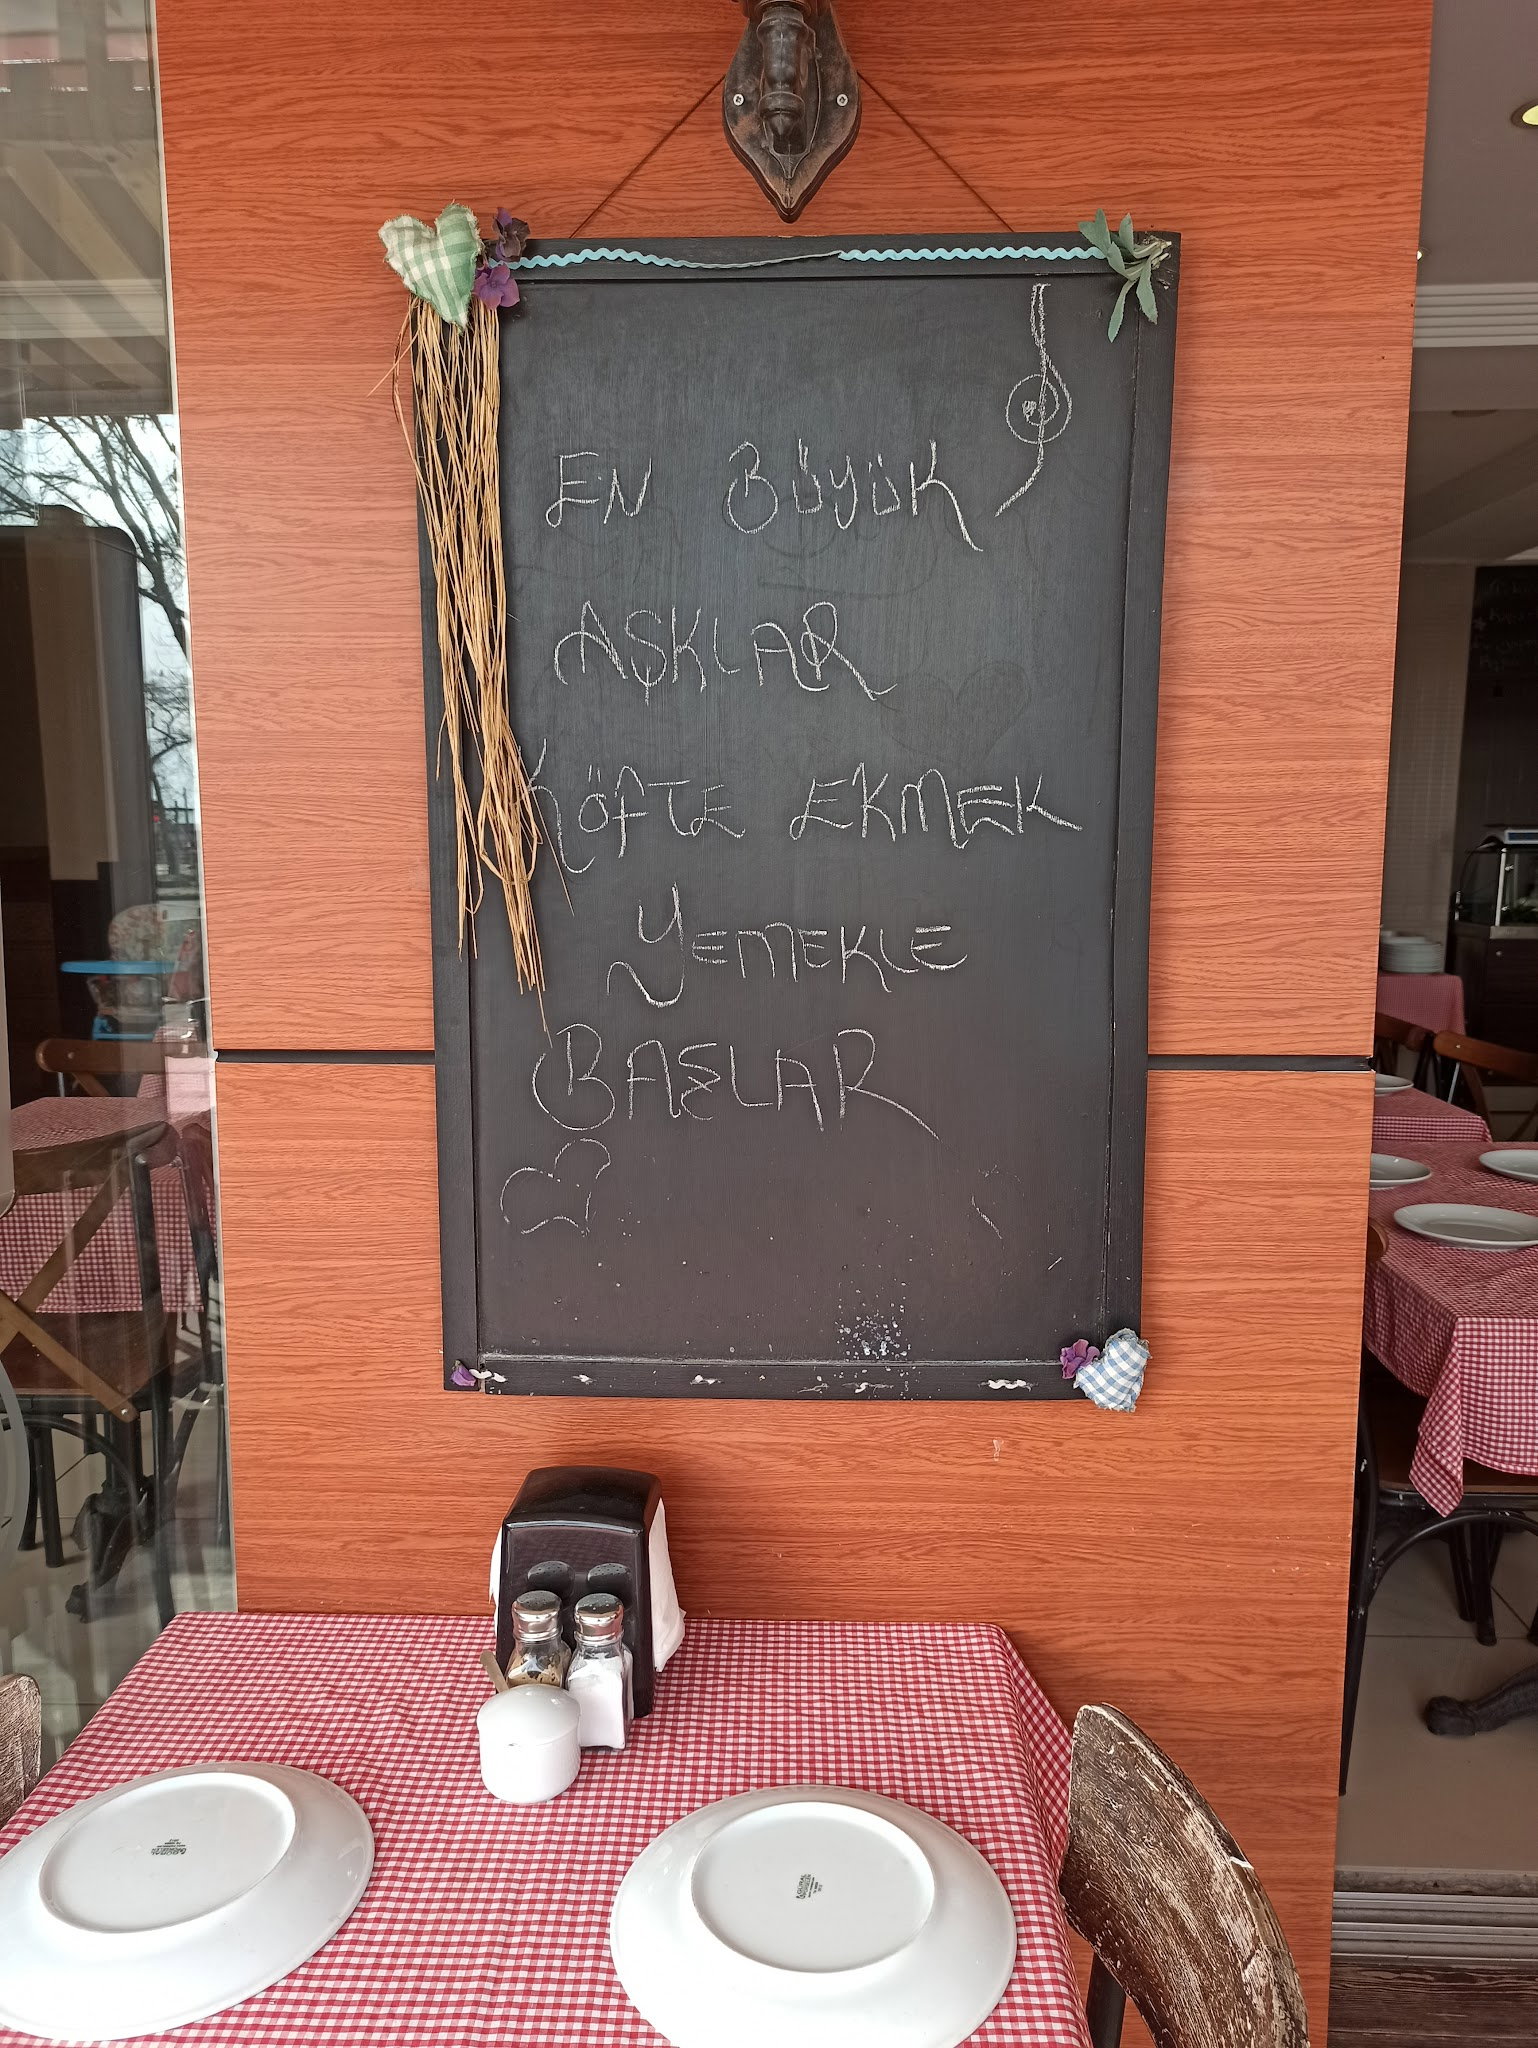 EN BÜYÜK
AŞKLAR
KÖFTE EKMEK
YEMEKLE
BAŞLAR